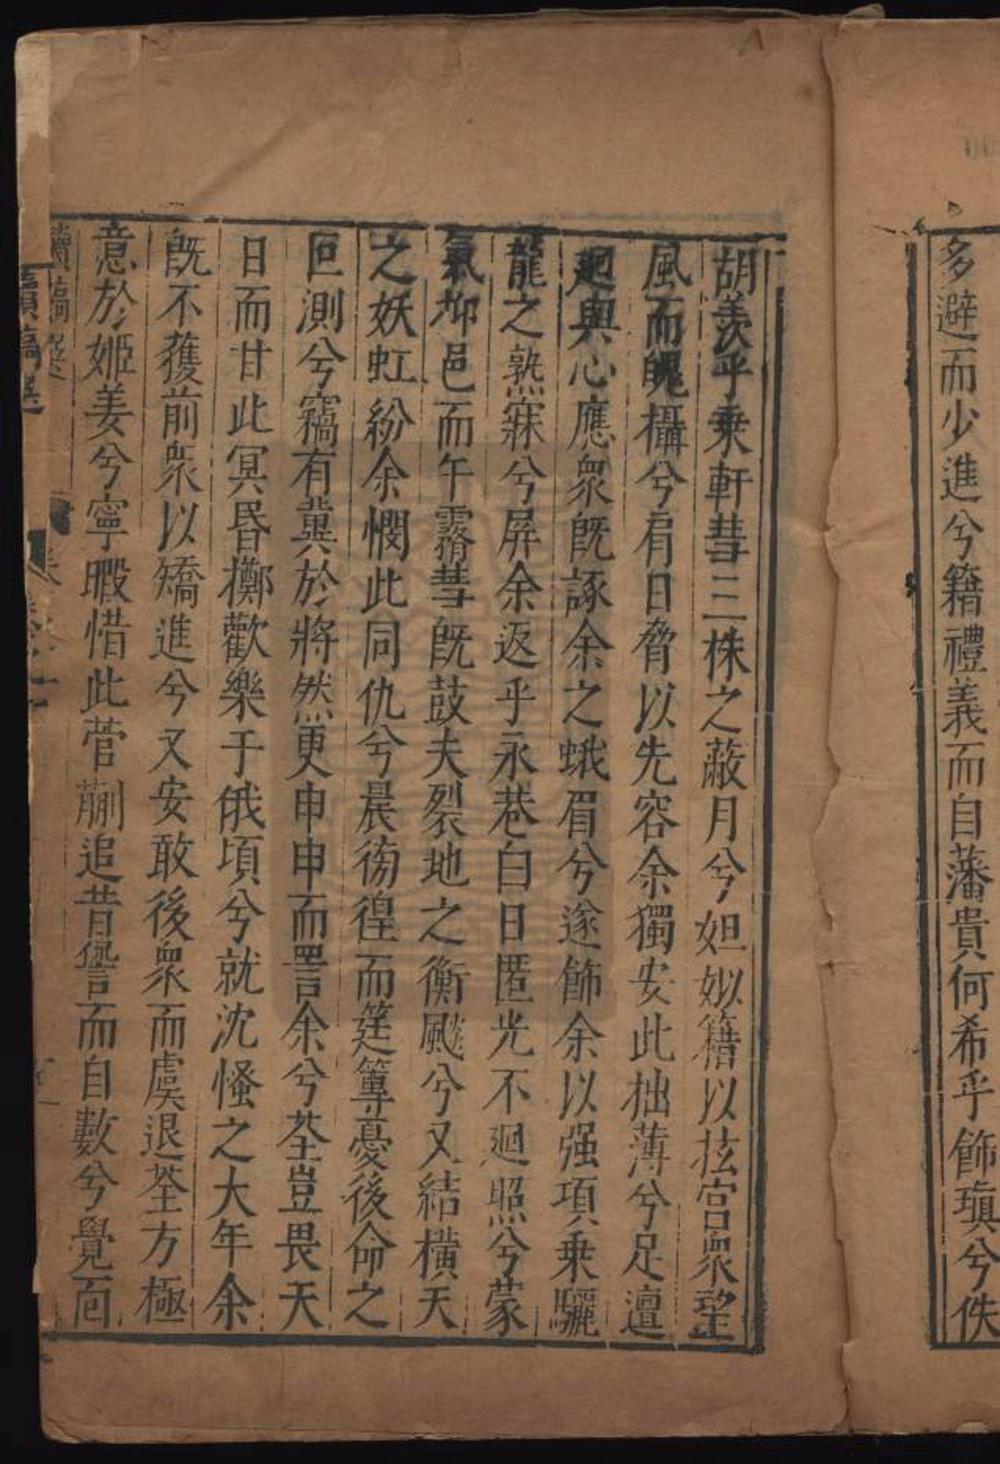 多避而少進兮籍禮義而自藩貴何希乎飾瑱兮佚
胡羨乎乘軒彗三株之蔽月兮妲姒籍以抎宮衆望
風而魄攝兮肩日脅以先容余獨安此拙薄兮足邅
迴與心應衆既諑余之蛾眉兮遂飾余以强項乗驪
龍之熟寐兮屏余返乎永巷白日匿光不廻照兮蒙
氣抑邑而午霿彗既鼓夫裂地之衡颷兮又結橫天
之妖虹紛余憫此同仇兮晨徬徨而筳篿憂後命之
叵測兮竊有冀於將然更申申而詈余兮荃豈畏天
日而甘此冥昏擲歡樂于俄頃兮就沈慅之大年余
既不獲前衆以矯進兮又安敢後衆而虞退荃方極
意於姬姜兮寧暇惜此菅蒯追昔諐而自數兮覺面